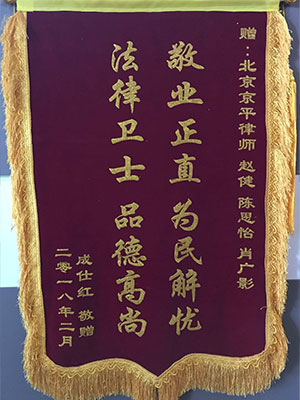 赠：北京京平律师 赵健 陈思怡 肖广影
敬业正直 为民解忧
法律卫士 品德高尚
成仕红 敬赠
二零一八年二月